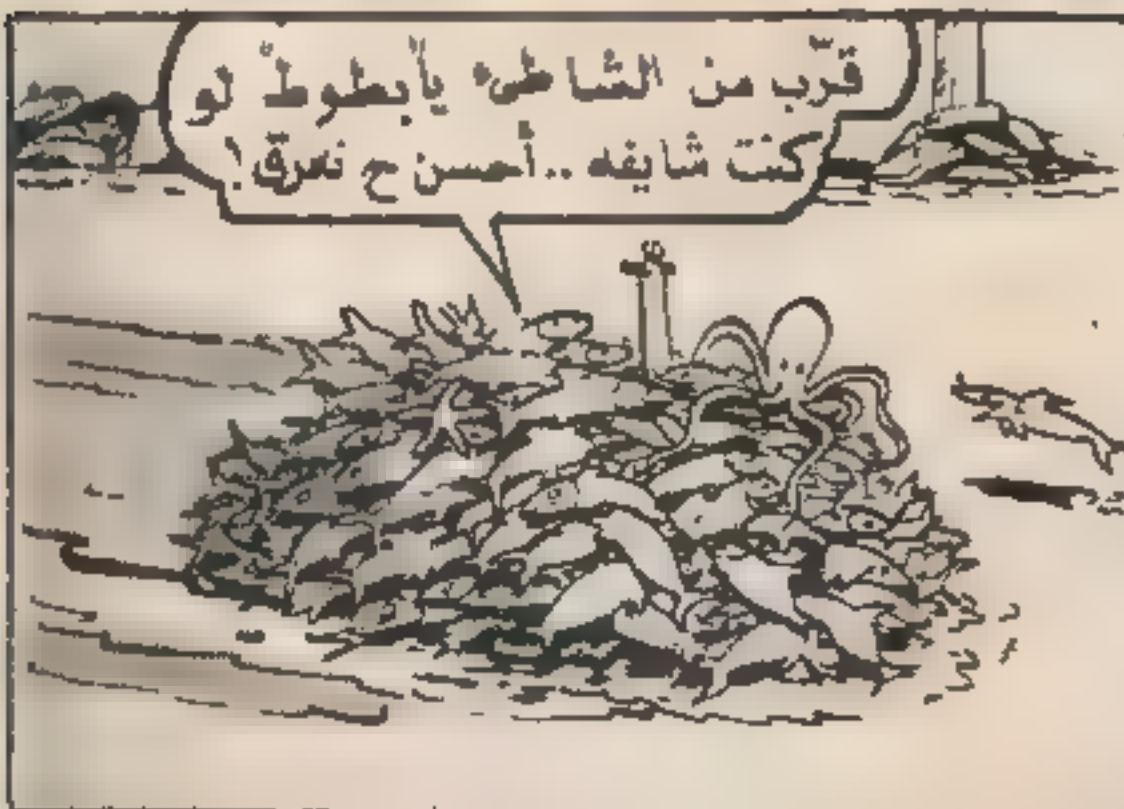 قرّب من الشاطىء يابطوط لو
كنت شايفه ..أحسن ح نغرق!